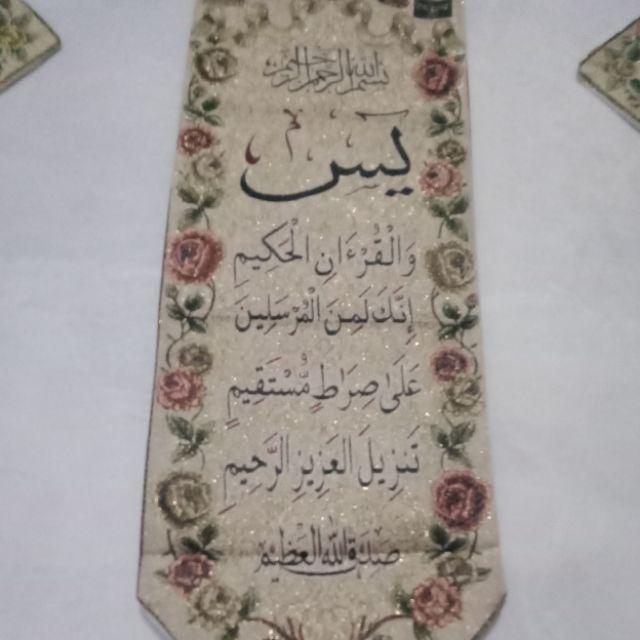 بسم الله الرحمن الرحيم
يسٓ
وَالْقُرْءَانِ الْحَكِيمِ
إِنَّكَ لَمِنَ الْمُرْسَلِينَ
عَلَىٰ صِرَاطٍ مُّسْتَقِيمٍ
تَنزِيلَ الْعَزِيزِ الرَّحِيمِ
صدق الله العظيم